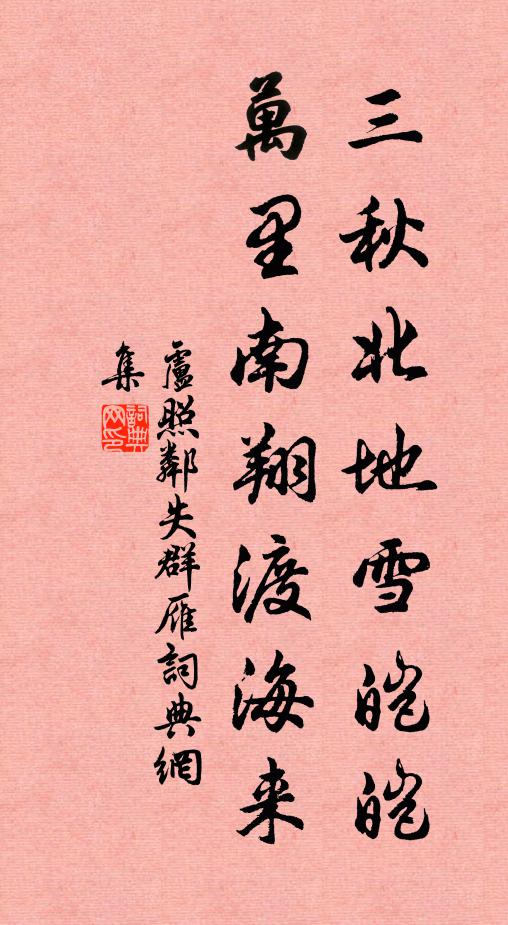 三秋北地雪皑皑
萬里南翔渡海来
盧照鄰失群雁詞典網
集
詞典
网印